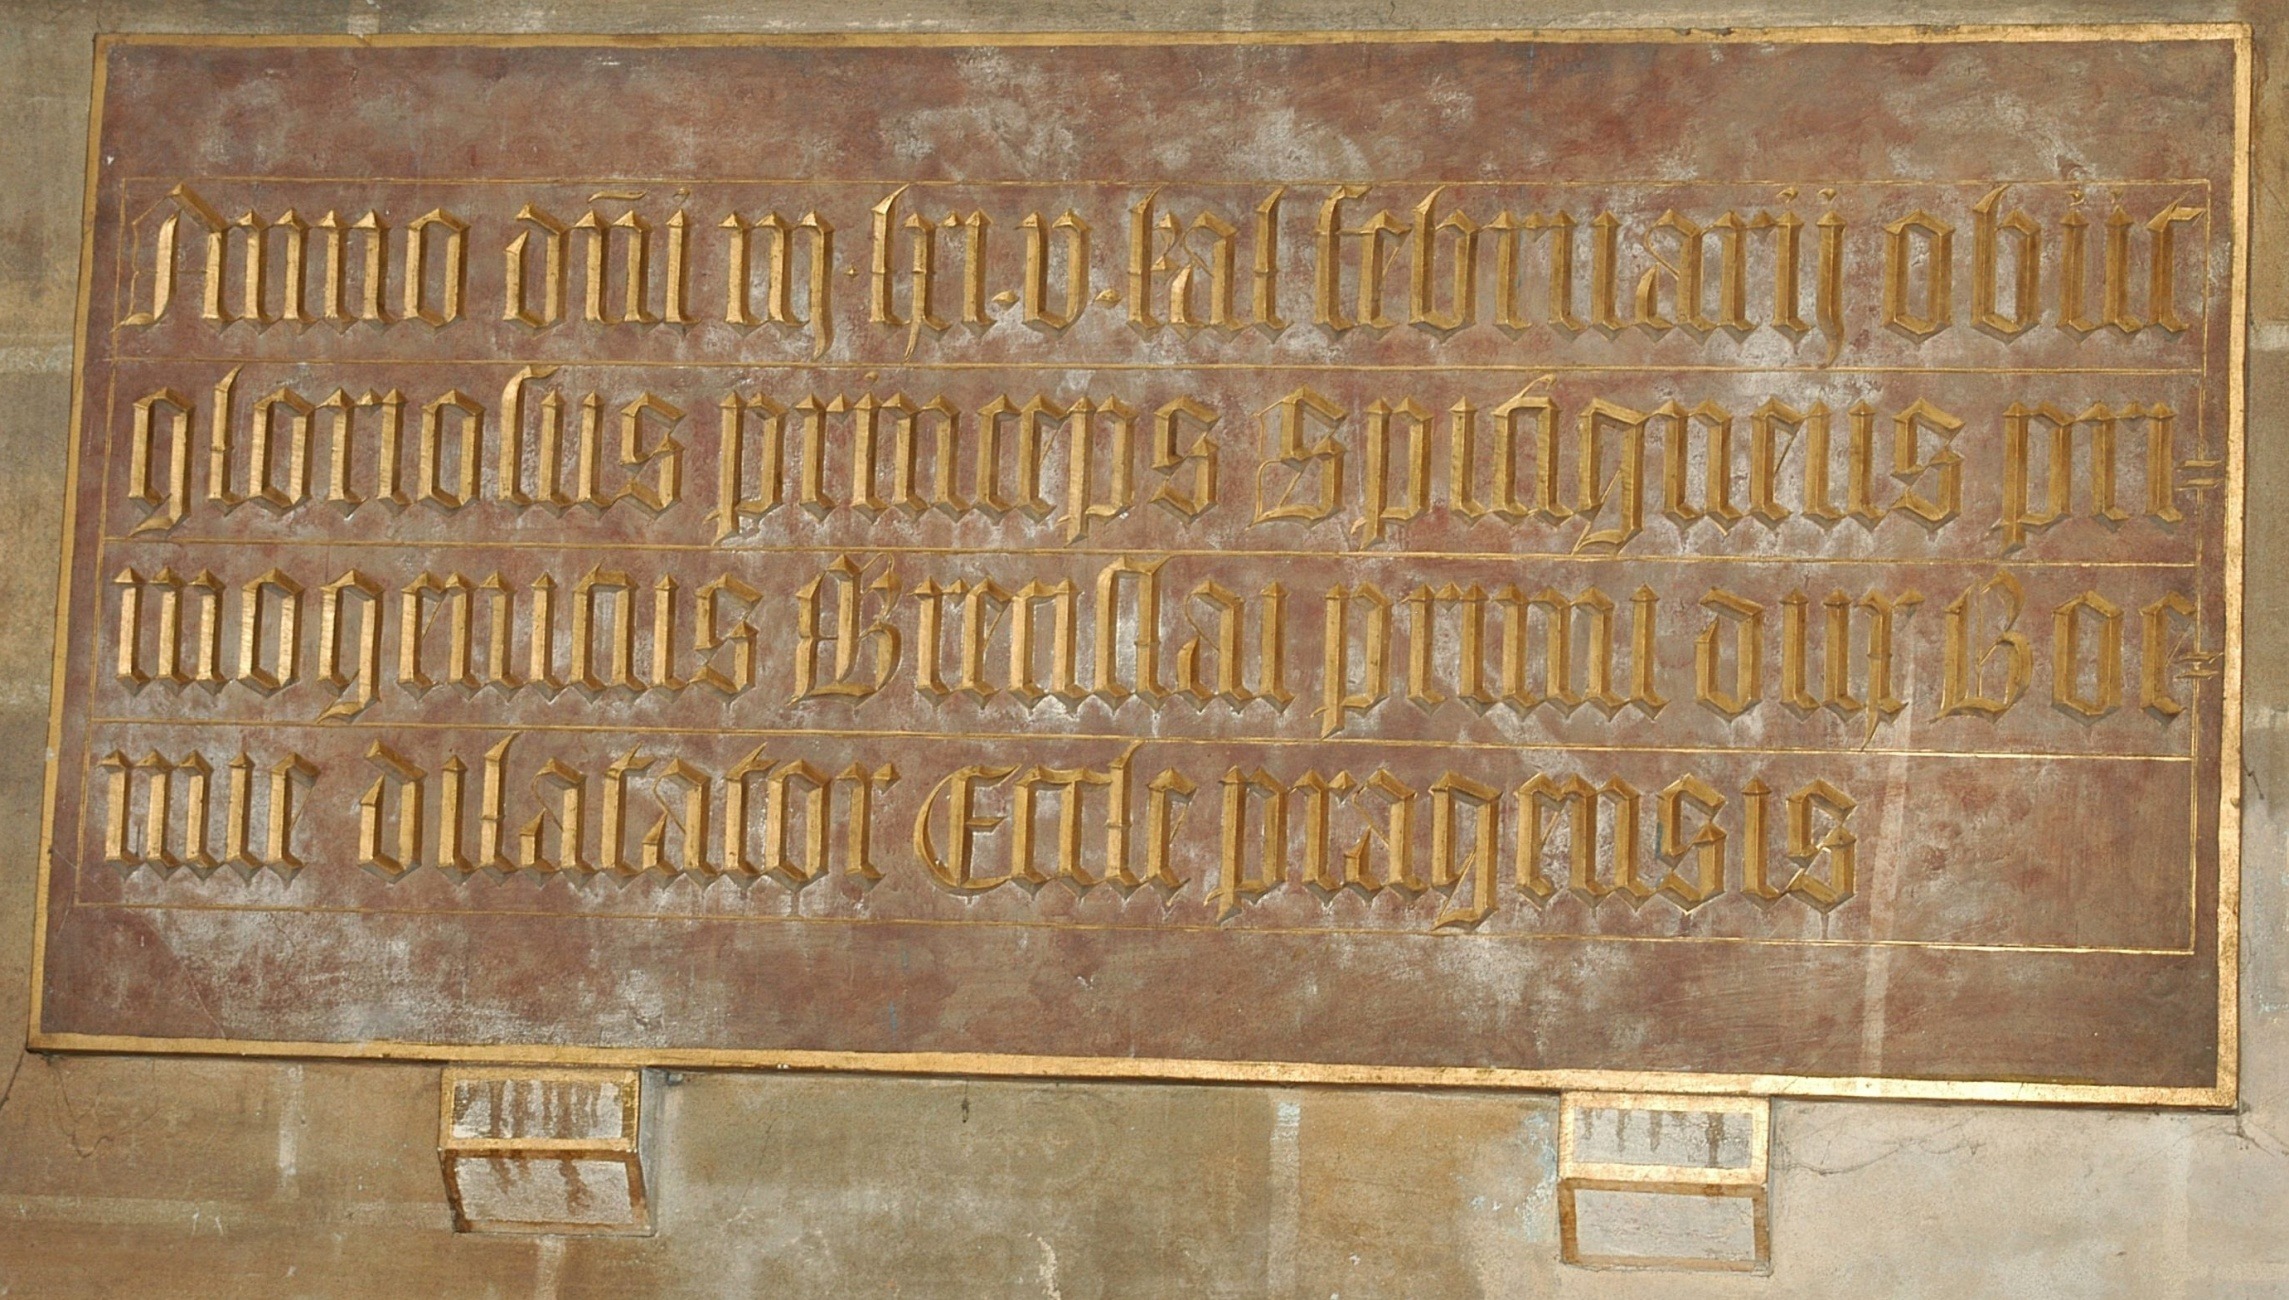 Anno dñi m · lxi . v . kal februarij obiit
gloriosus princeps Spitigneus pri=
mogenitus Bretislai primi ducis Boe=
mie dilatator Eccle pragensis